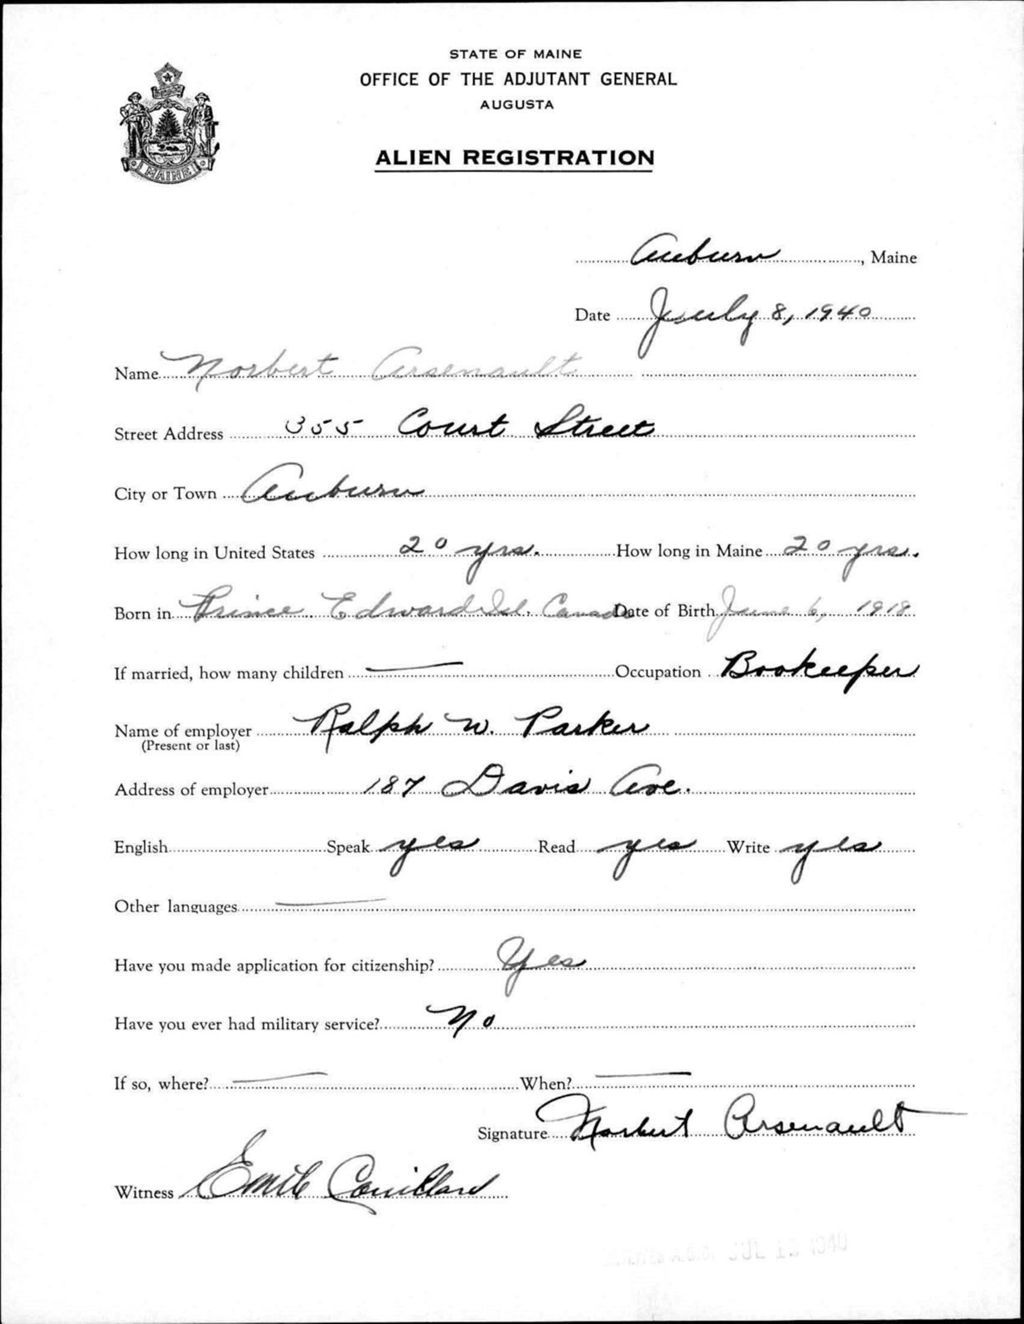 STATE OF MAINE
OFFICE OF THE ADJUTANT GENERAL
AUGUSTA
ALIEN REGISTRATION
MAINE
Auburn, Maine
Date July 8, 1940
Name Norbert Arsenault
Street Address 355 Court Street
City or Town Auburn
How long in United States 20 yrs. How long in Maine 20 yrs.
Born in Prince Edward Isl. Canada Date of Birth June 6, 1918
If married, how many children — Occupation Bookeeper
Name of employer Ralph W. Parker
(Present or last)
Address of employer 187 Davis Ave.
English Speak yes Read yes Write yes
Other languages —
Have you made application for citizenship? Yes
Have you ever had military service? No
If so, where? — When? —
Signature Norbert Arsenault
Witness Emile Couillard
A.G.O. JUL 12 1940